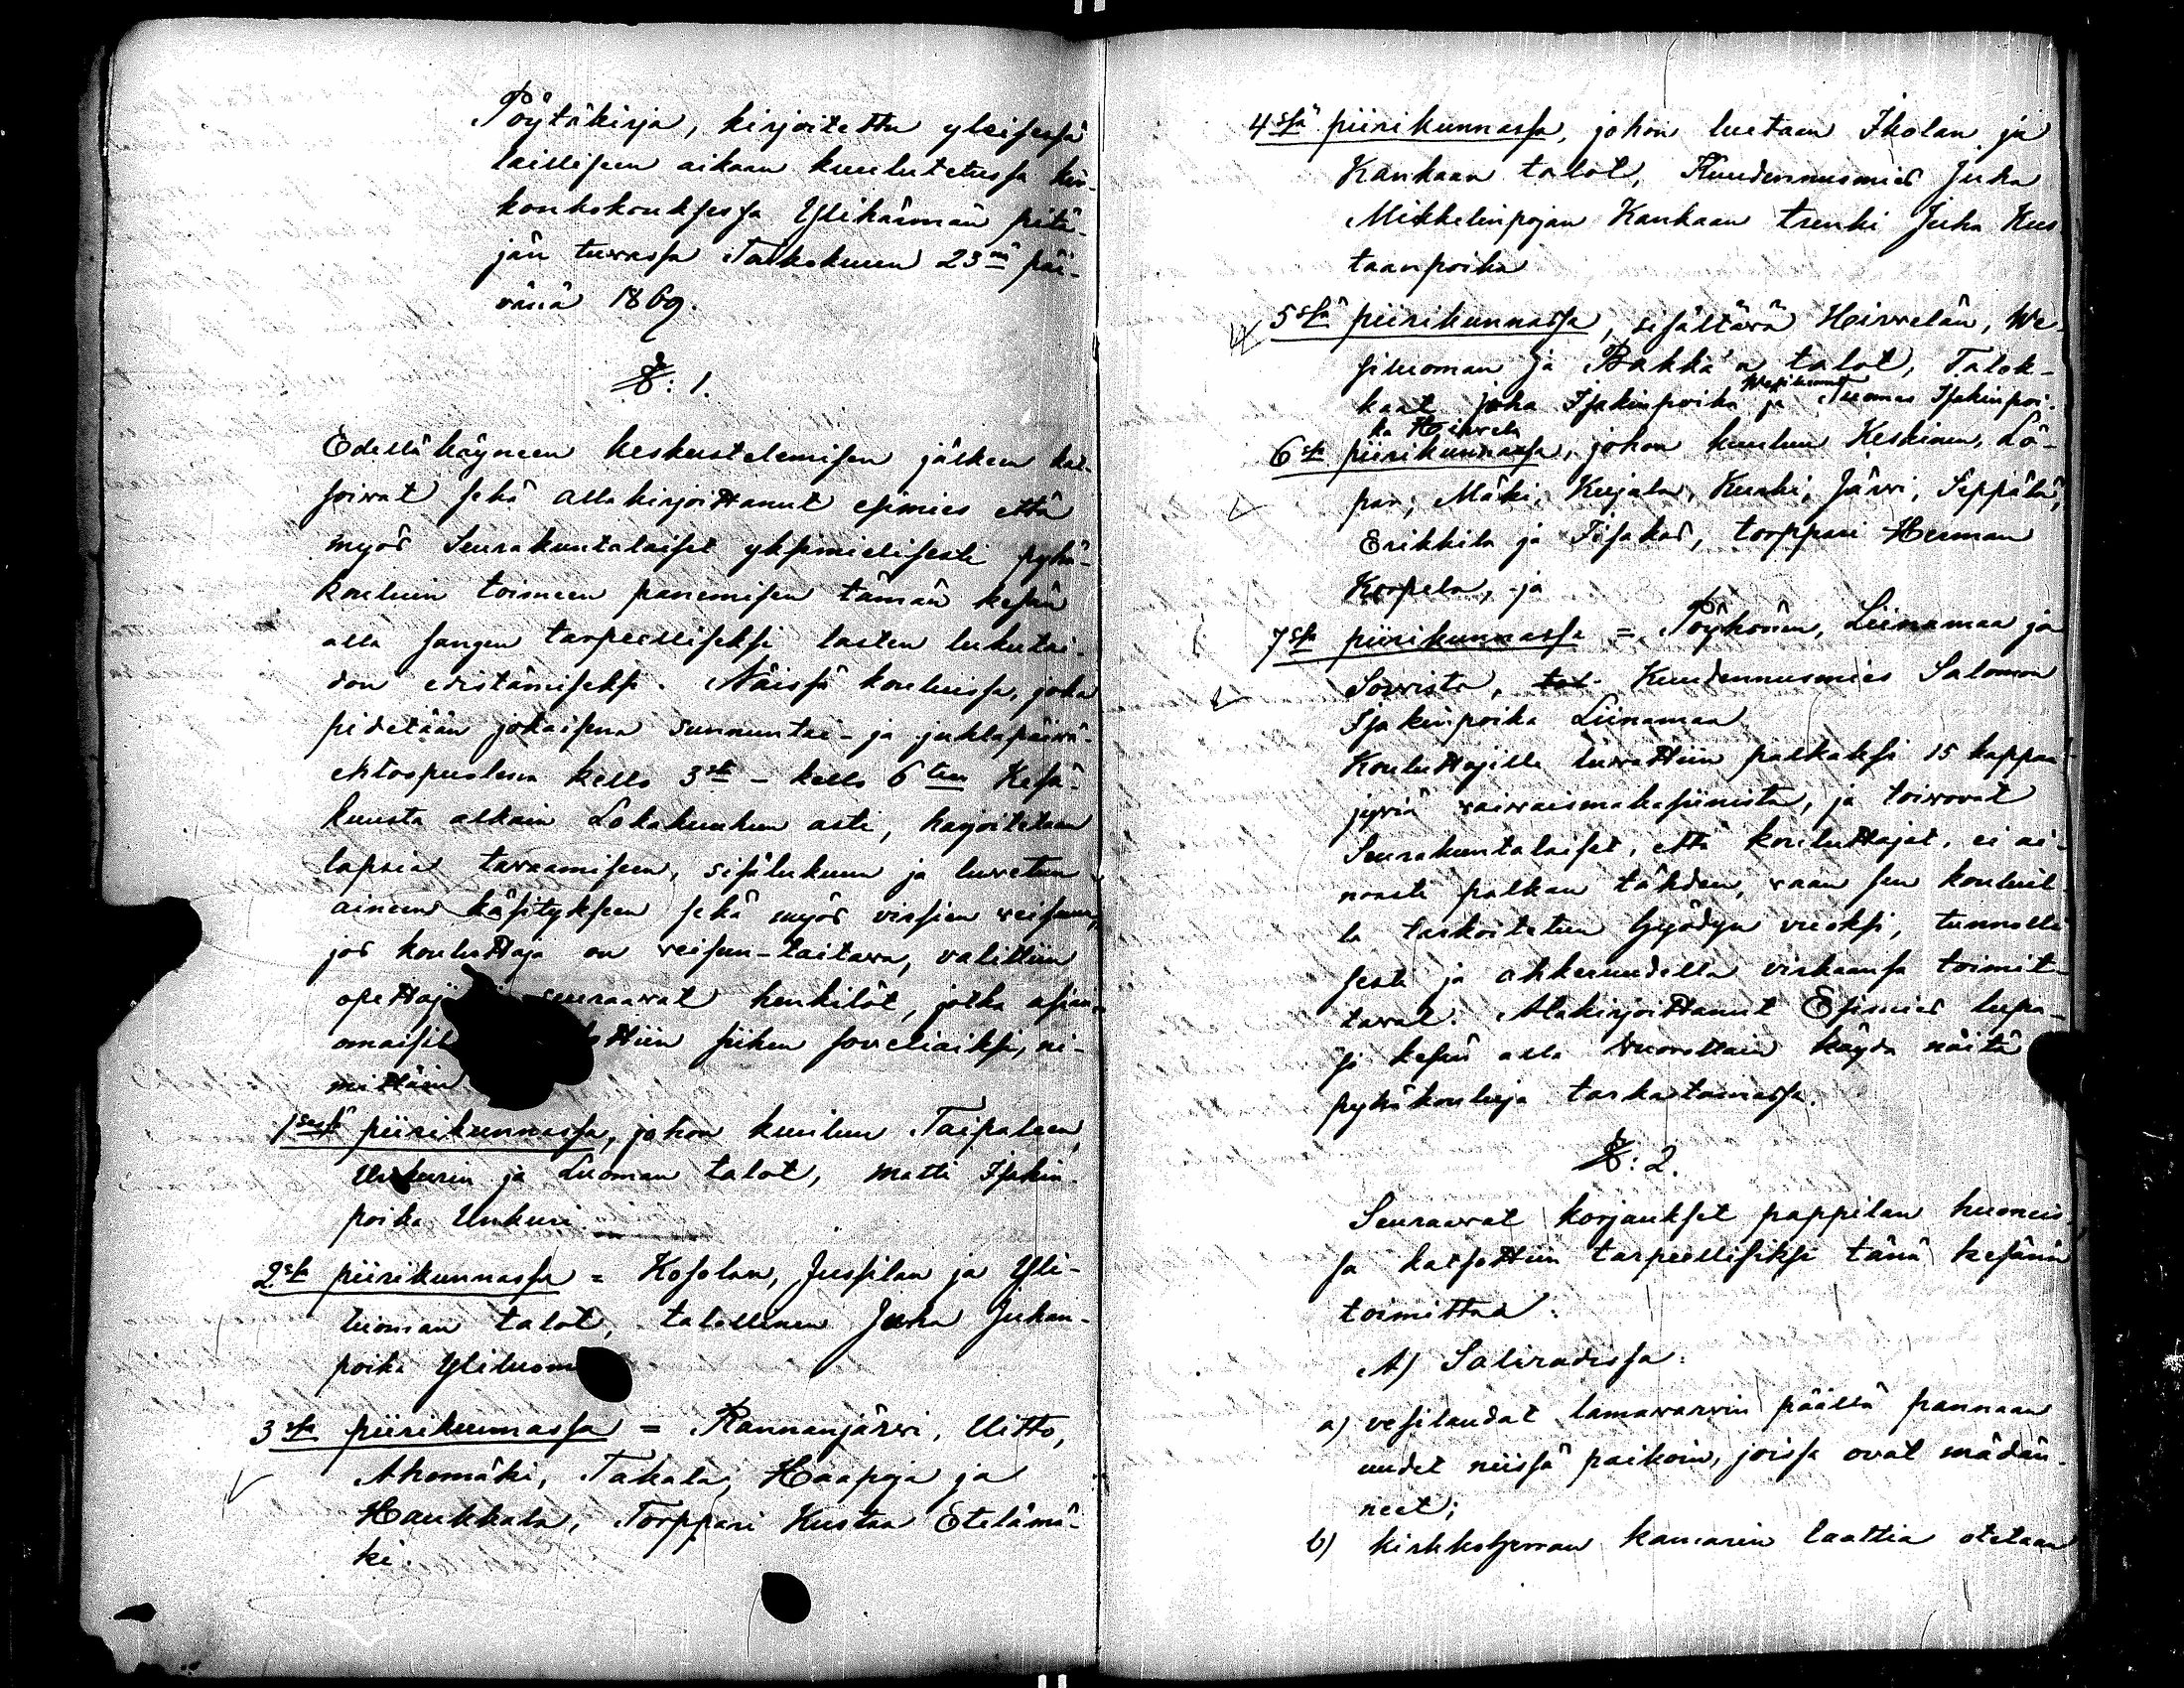 Pöytäkirja, kirjoitettu yleisessä
laillisseen aikaan kuulutetussa kir-
konkokouksessa Ylihärmän pitä-
jän tuwassa Toukokuun 23nä päi-
vänä 1869.
§: 1.
Edellä käyneen keskustelemisen jälkeen kat-
soiwat sekä allakirjoittanut esimies että
myös Seurakuntalaiset yksimielisesti pyhä-
kouluin toimeen panemisen tämän kesän
alla sangen tarpeelliseksi lasten lukutai-
don edistämiseksi. Näissä kouluissa, joka
pidetään jokaisna sunnuntai- ja juhlapäiwä-
ehtoopuolena kello 3st - kello 6teen Kesä-
kuusta alkain Lokakuuhun asti, harjoitetaan
lapsia tawaamiseen, sisälukuun ja luwetun
aineen käsitykseen sekä myös virsien veisuun,
jos kouluttaja on veisuu-taitawa, valittiin
opettaj seuraawat henkilöt, jotka asian-
omaisil ttiin siihen soveliaiksi, ni-
mittäin
1sessä piirikunnassa, johon kuuluu Taipaleen,
Unkurin ja Luoman talot, Matti Isakin-
poika Unkuri.
2sa piirikunnassa = Kosolan, Jussilan ja Yli-
luoman talot, talollinen Juha Juhan-
poika Yliluom
3sa piirikunnassa = Rannanjärwi, Uitto,
Ahomäki, Takala, Haapoja ja
Haukkala, Torppari Kustaa Etelämä-
ki.
4ssä piirikunnassa, johon luetaan Ikolan ja
Kankaan talot, Kuudennusmies Juha
Mikkelinpojan Kankaan trenki Juha Kus
taanpoika
5ssä piirikunnassa, sisältäwä Heirwelän, We-
siluoman ja Pakka'n talot, Talok-
kaat Juha Isakinpoika Wesiluoma ja Tuomas Isakinpoi-
ka Hoirwela
6sa piirikunnassa, johon kuuluu Keskinen, Lö-
par, Mäki, Kujala, Kuuki, Järwi, Seppälä,
Erikkila ja Fisakas, torppari Herman
Korpela, ja
7sa piirikunnassa = Pöyhönen, Liinamaa ja
Sowista, Kuudennusmies Salomon
Isakinpoika Liinamaa.
Kouluttajille luwattiin palkaksi 15 kappaa
jywiä waiwaismakasiinista, ja toiwowat
Seurakuntalaiset, että kouluttajat, ei ai-
noasti palkan tähden, waan sen kouluil
la tarkoitetun hyödyn vuoksi, tunnolli
sesti ja ahkeruudella virkaansa toimit-
tawat. Allakirjoittanut Esimies lupa-
si kesän alla vuorottain käydä näitä
pyhäkouluja tarkastamassa.
§: 2.
Seuraawat korjaukset pappilan huoneis-
sa katsottiin tarpeellisiksi tänä kesänä
toimittaa:
A) Saliradissa:
a) vesilaudat lamawarwin päällä pannaan
uudet niissä paikoin, joissa ovat mädän-
neet;
b) kirkkoherran kamarin laattia otetaan